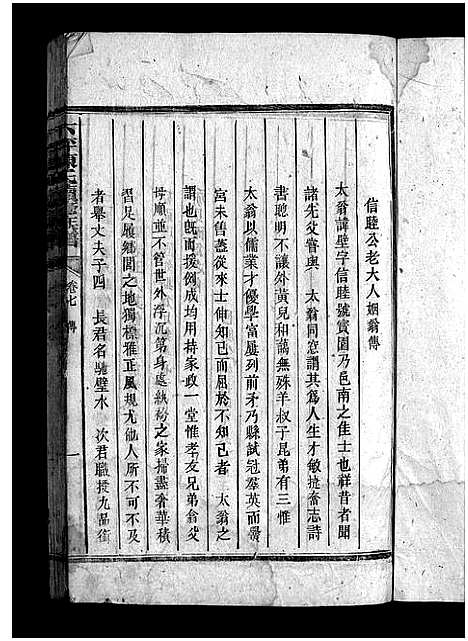 信睦公老大人姻翁傳
太翁諱壁字信睦號實園乃邑南之佳士也祥昔者聞
諸先父嘗與 太翁同窓謂其爲人生才敏捷奮志詩
書聰明不讓外黃兒和藹無殊羊叔子昆弟有三惟
太翁以儒業才優學富屢列前矛乃縣試冠羣英而黌
宮未售蓋從來士伸知己而屈於不知己者 太翁之
謂也旣而援例成均用持家政一堂惟孝友兄弟翕父
母順並不管世外浮沉第身處紈紛之家掃盡奢華積
習足履鄉閭之地獨標雅正風規尤他人所不可不及
者舉丈夫子四 長君名馳璧水 次君職授九品銜
卷七 傳
一